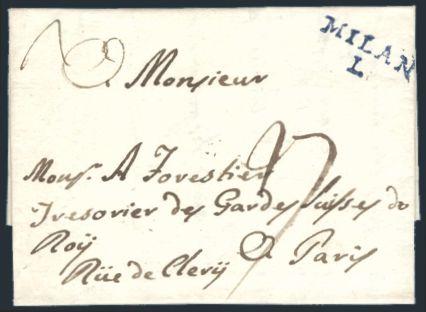 MILAN
L.
A Monsieur
Mons.r A Forestier
Tresorier des Gardes Suisses du
Roÿ
Rüe de Clerÿ
A Paris